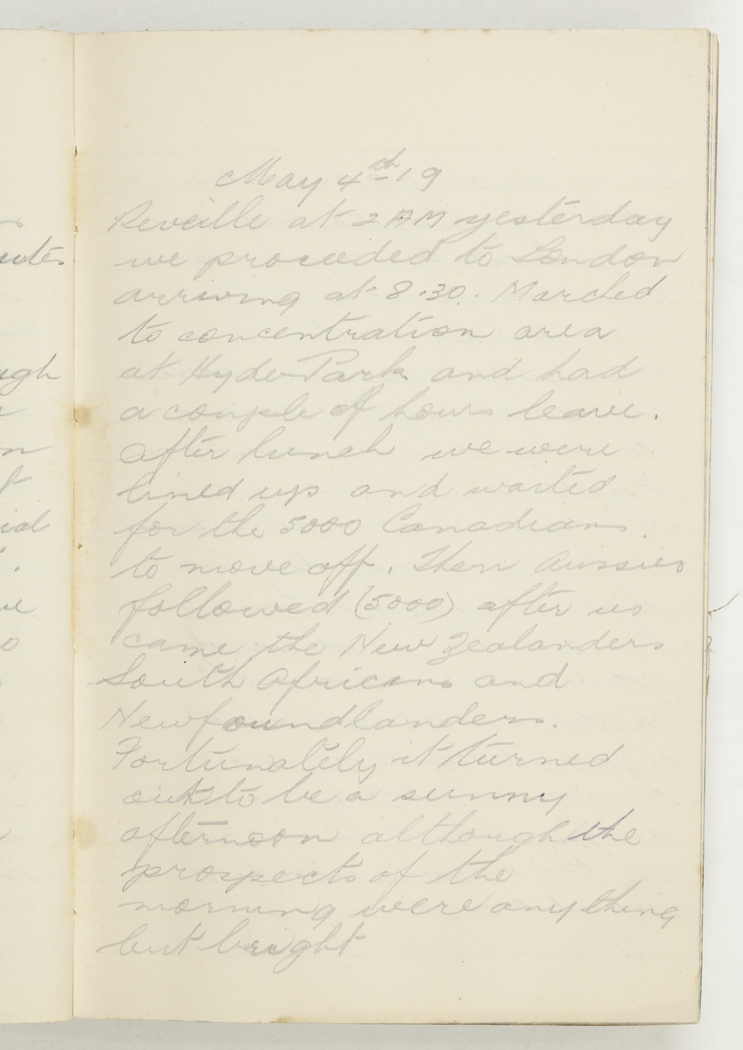 May 4th 19
Reveille at 2 AM yesterday
we proceeded to London
arriving at 8.30. Marched
to concentration area
at Hyde Park and had
a couple of hours leave.
After lunch we were
lined up and waited
for the 5000 Canadians
to move off. Then Aussies
followed (5000) after us
came the New Zealanders
South Africans and
Newfoundlanders.
Fortunately it turned
out to be a sunny
afternoon although the
prospects of the
morning were anything
but bright